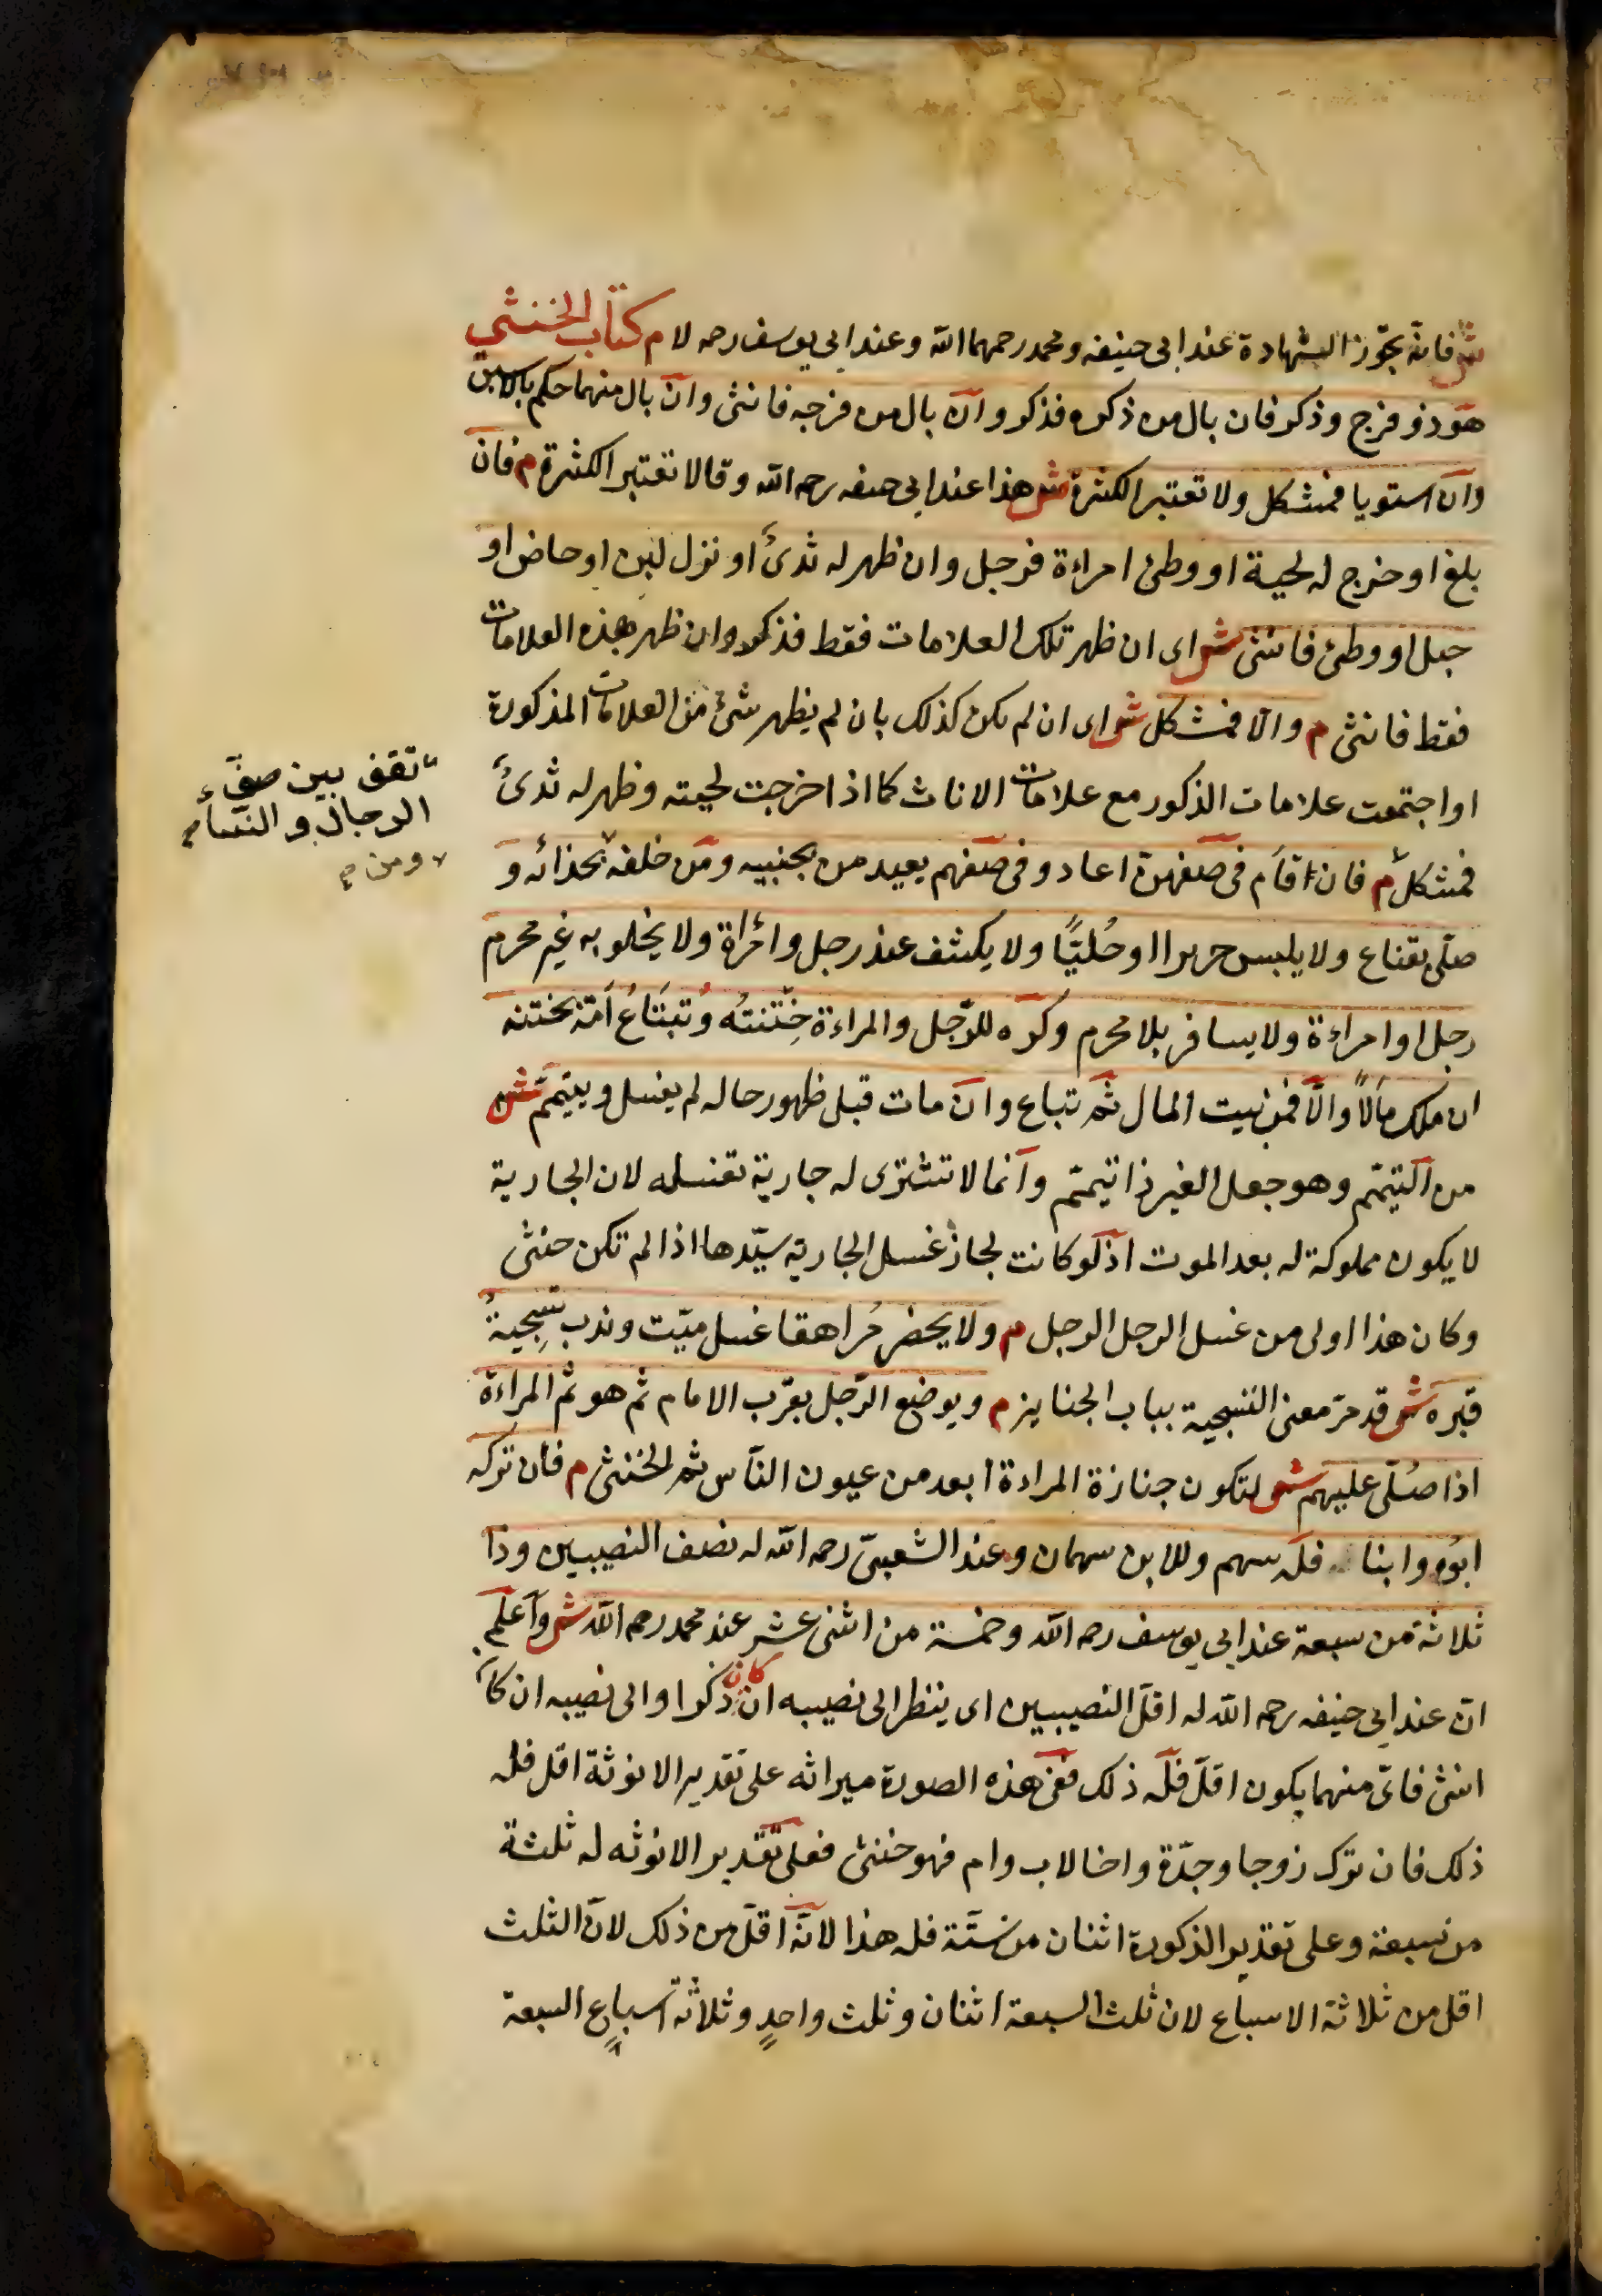 ش فانه تجوز الشهادة عند ابى حنيفه ومحمد رحمهما الله وعند ابى يوسف رحمه لا م كتاب الخنثى
هو ذو فرج وذكر فان بال من ذكره فذكر وان بال من فرجه فانثى وان بال منهما حكم بالاسبق
وان استويا فمشكل ولا تعتبر الكثرة ش هذا عند ابى حنيفه رحمه الله وقالا تعتبر الكثرة م فان
بلغ او خرج له لحية او وطئ امراءة فرجل وان ظهر له ثدىٌ او نزل لبن او حاض او
حبل او وطئ فانثى ش اى ان ظهر تلك العلامات فقط فذكر وان ظهر هذه العلامات
فقط فانثى م والا فمشكل ش اى ان لم يكن كذلك بان لم يظهر شئ من العلامات المذكورة
او اجتمعت علامات الذكور مع علامات الاناث كما اذا خرجت لحيته وظهر له ثدىٌ
فمشكل م فان اقام فى صفهن اعاد وفى صفهم يعيد من بجنبيه ومن خلفه بحذائه و
صلى بقناع ولا يلبس حريرا او حُليًّا ولا يكشف عند رجل وامراة ولا يخلو به غير محرم
رجل او امراءة ولا يسافر بلا محرم وكره للرجل والمراءة خِتنتُه وتُبتَاعُ امَة تختنه
ان ملك مالاً والا فمن بيت المال ثم تباع وان مات قبل ظهور حاله لم يغسل وييمم ش
من التيمم وهو جعل الغير ذا تيمم وانما لا تشترى له جارية تغسله لان الجارية
لا يكون مملوكة له بعد الموت اذ لو كانت لجاز غسل الجارية سيّدها اذا لم تكن خنثى
وكان هذا اولى من غسل الرجل الرجل م ولا يحضر مُراهقا غسل ميّت وندب تسجيةُ
قبره ش قد مرّ معنى التسجية بباب الجنايز م ويوضع الرّجل بقرب الامام ثم هو ثم المراءة
اذا صُلّى عليهم ش لتكون جنازة المراءة ابعد من عيون النّاس ثم الخنثى م فان تركه
ابوه وابنا فله سهم وللابن سهمان وعند الشعبىّ رحمه الله له نصف النصيبين وذا
ثلاثة من سبعة عند ابى يوسف رحمه الله وخمسة من اثنى عشر عند محمد رحمه الله ش واعلم
انّ عند ابى حنيفه رحمه الله له اقلّ النصيبين اى ينظر الى نصيبه ان كان ذكرا والى نصيبه ان كا
انثى فاىّ منهما يكون اقلّ فله ذلك ففى هذه الصورة ميراثه على تقدير الانوثة اقل فله
ذلك فان ترك زوجا وجدّة واخا لاب وام فهو خنثى فعلى تقدير الانوثه له ثلثة
من سبعة وعلى تقدير الذكورة اثنان من ستّة فله هذا لانّه اقلّ من ذلك لانّ الثلث
اقل من ثلاثة الاسباع لان ثلث السبعة اثنان وثلث واحدٍ وثلاثة اسباع السبعة
تقف بين صفّ
الرجال والنساء
ومن م